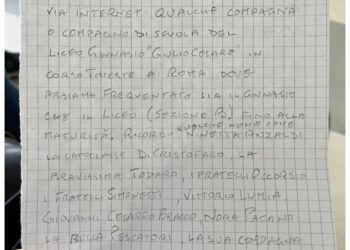 VIA INTERNET QUALCHE COMPAGNA
O COMPAGNO DI SCUOLA DEL
LICEO GINNASIO "GIULIO CESARE" IN
CORSO TRIESTE A ROMA DOVE
ABBIAMO FREQUENTATO SIA IL GINNASIO
CHE IL LICEO (SEZIONE B) FINO ALLA
MATURITÀ. RICORDO QUALCHE NOME COME NINETTA ANZALDI
LA CAPOCLASSE DI CRISTOFARO, LA
BRAVISSIMA TODARO, I FRATELLI OCCORSIO
I FRATELLI SIMONETTI, VITTORIO LUMIA,
GIOVANNI CESAREO, NORA PAGANO
LA BELLA PESCATORI, LA SUA COMPAGNA